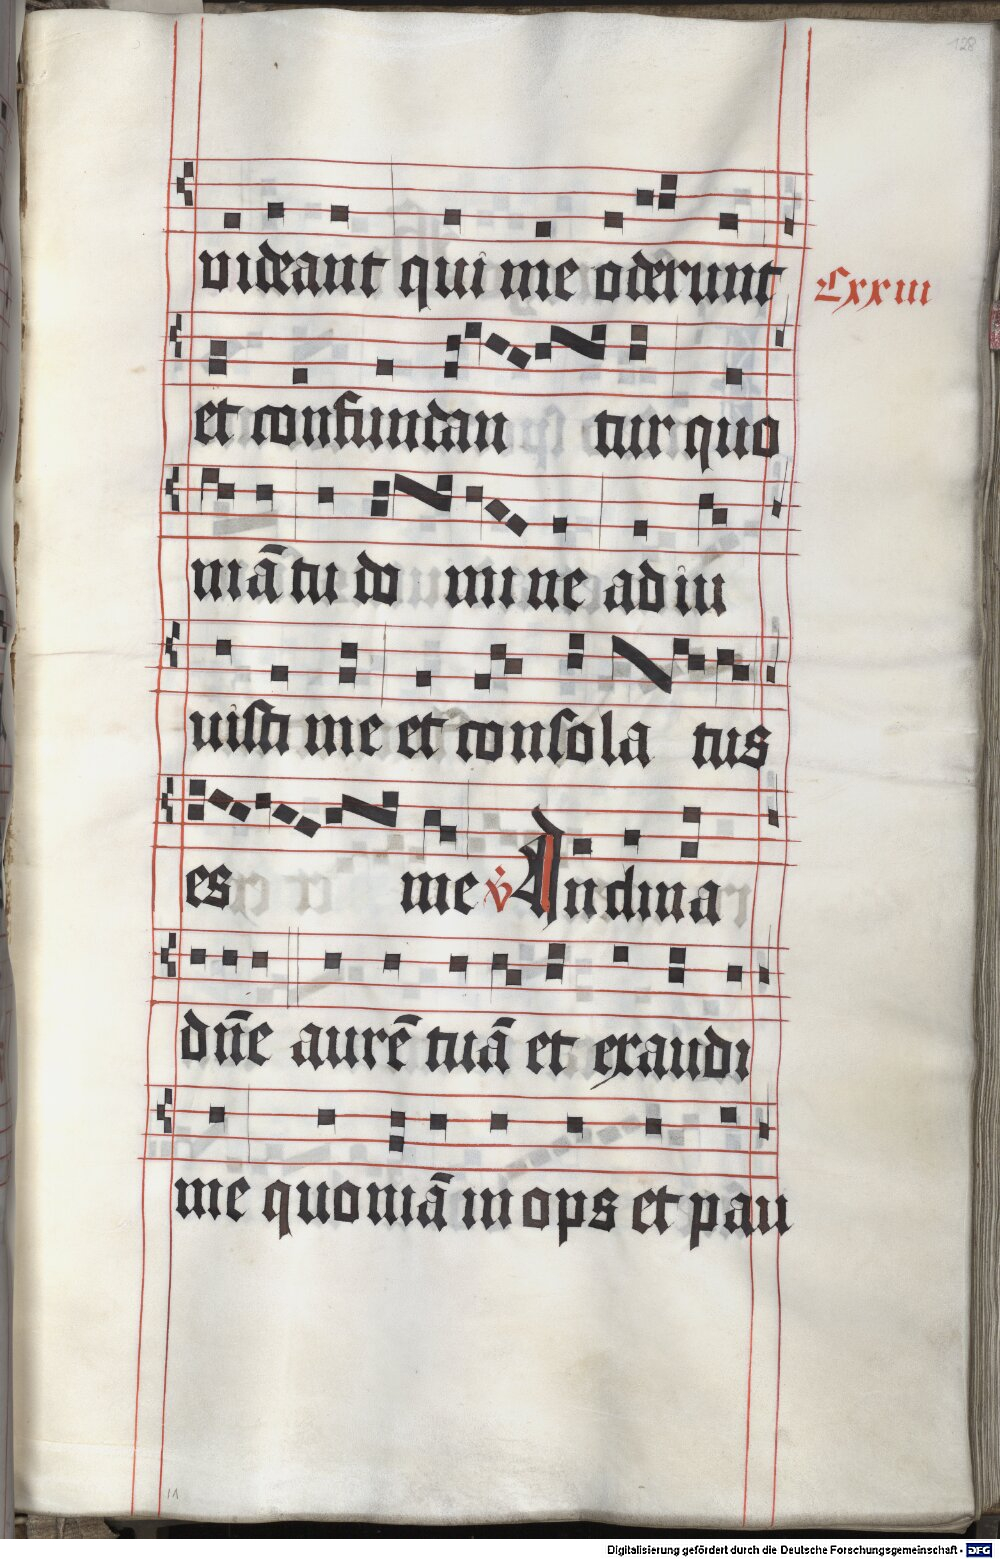 128
videant qui me oderunt
Cxxiii
et confundan tur quo
niā tu do mine ad iu
uisti me et consola tus
es me ℣ Inclina
dn̄e aurē tuā et exaudi
me quoniā inops et pau
Digitalisierung gefördert durch die Deutsche Forschungsgemeinschaft - DFG